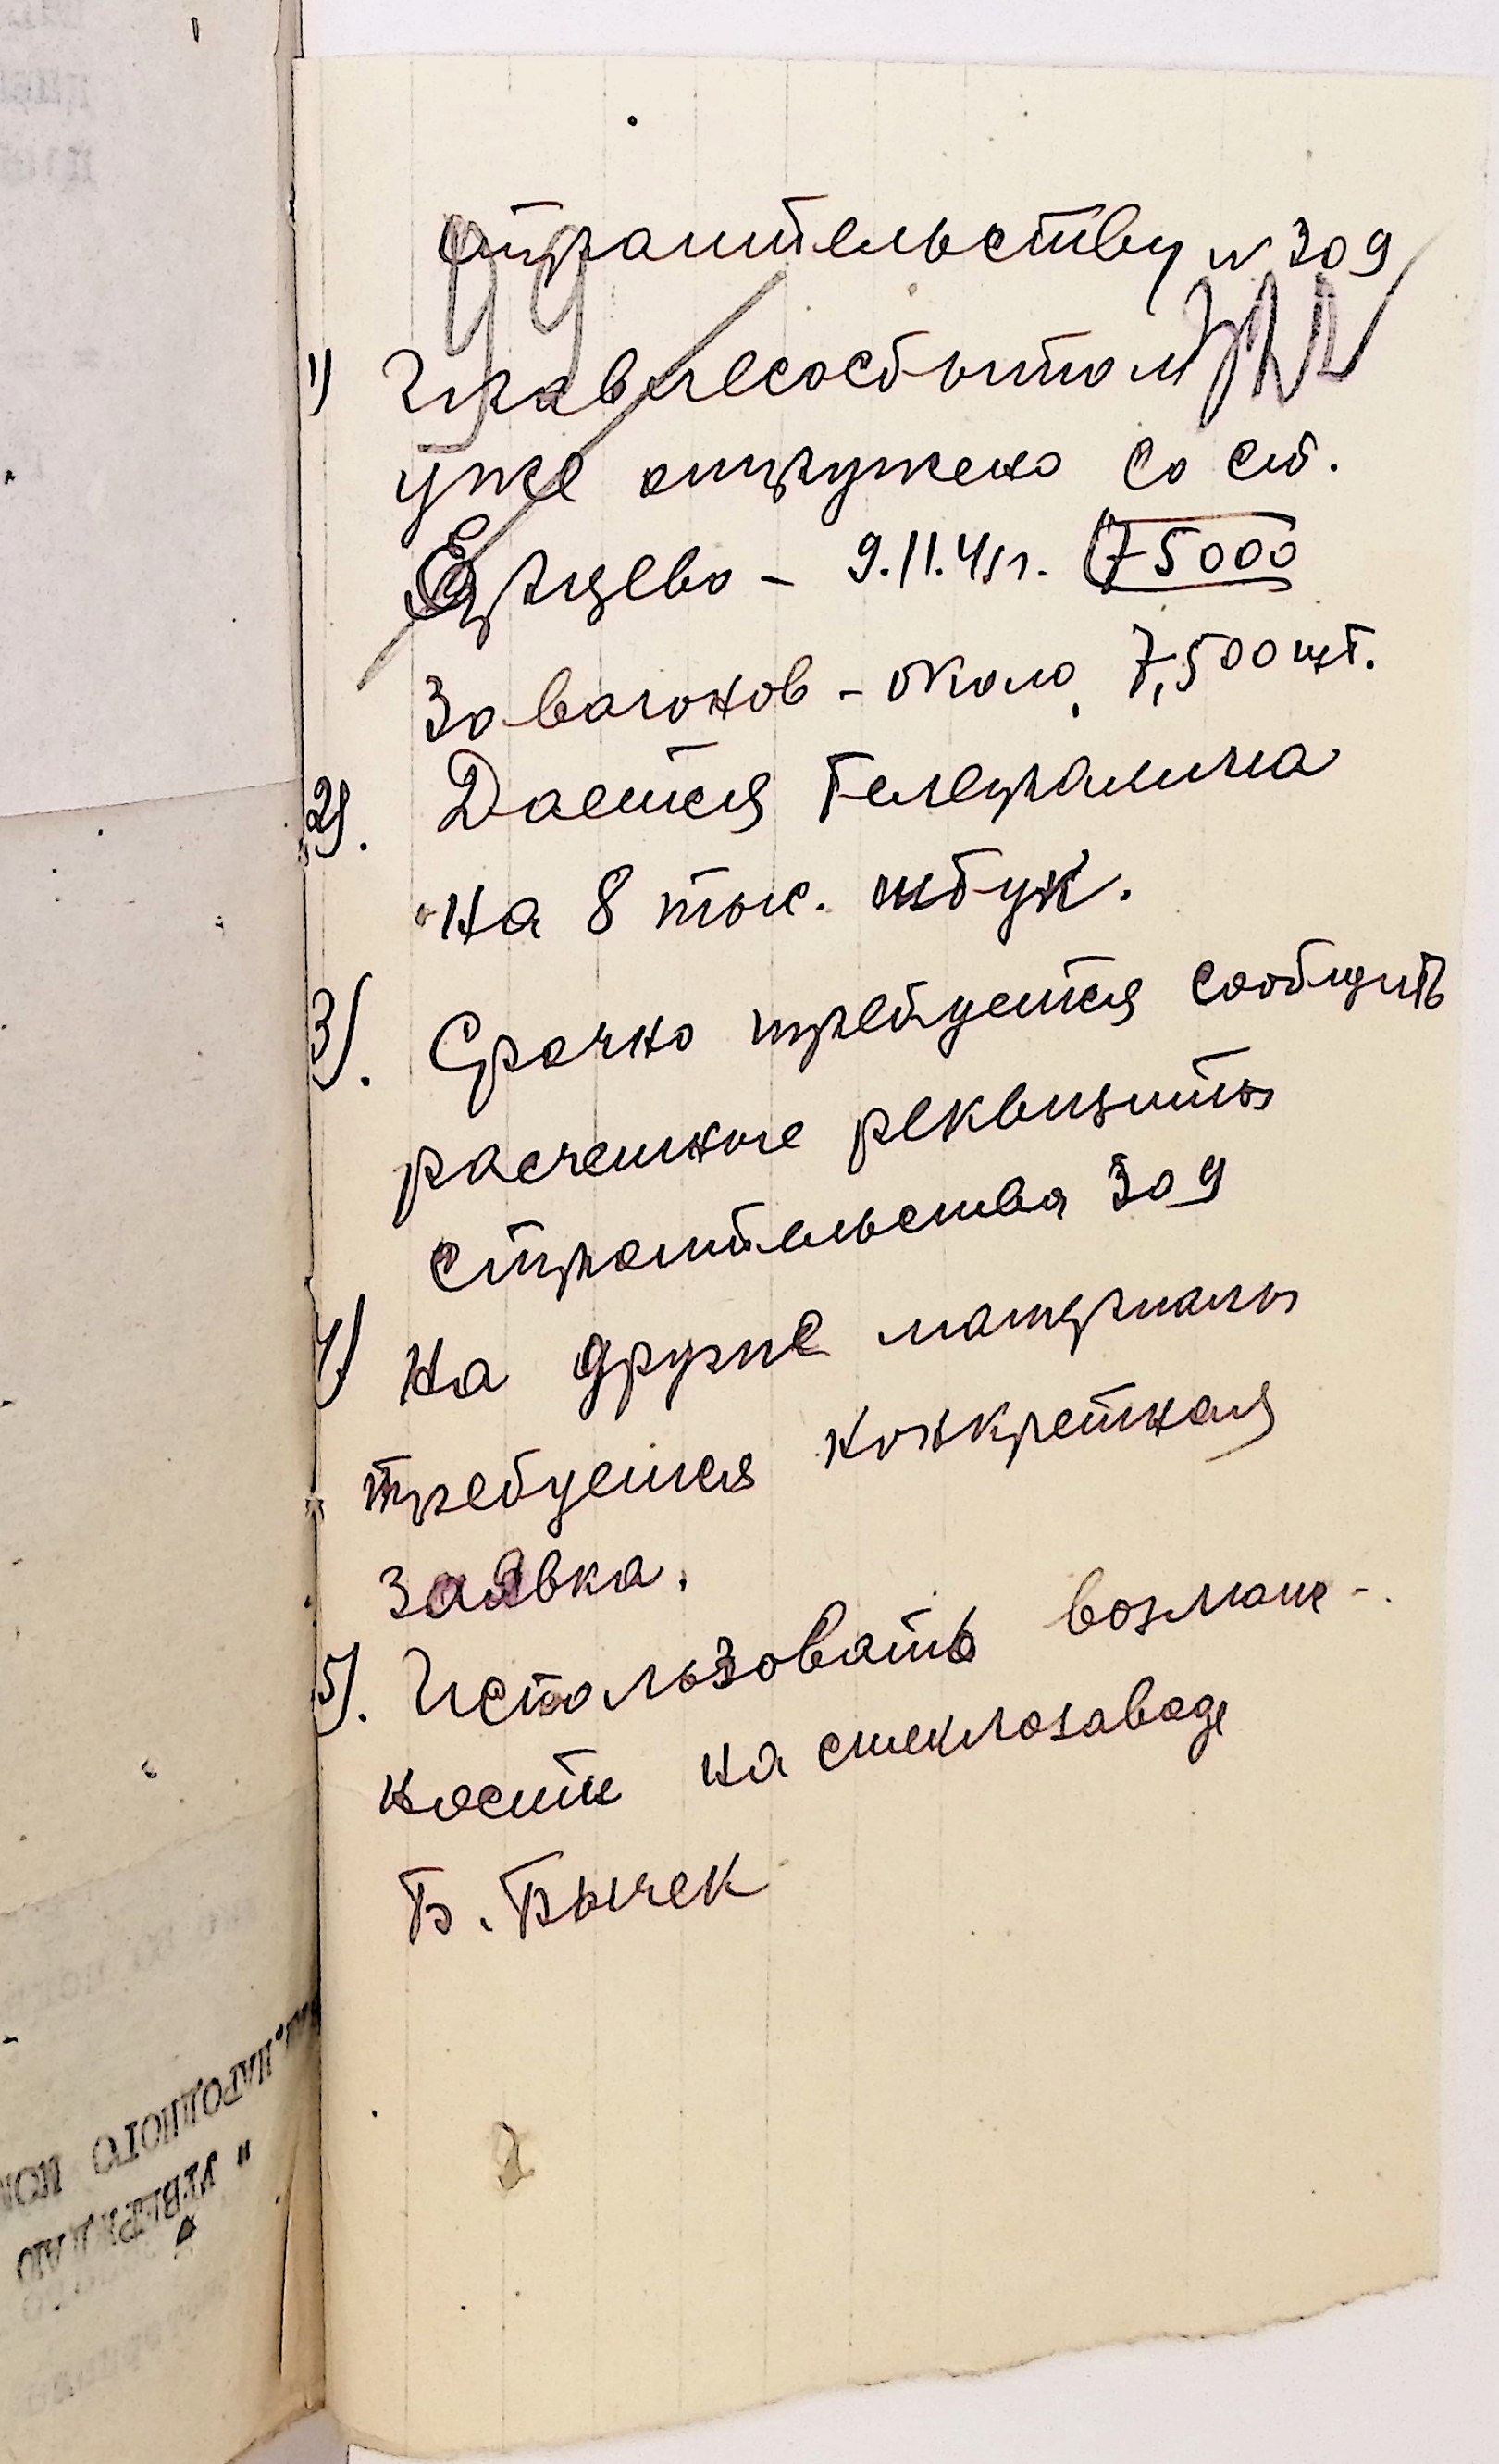 Строительству N 309
1) Главлесосбытом
уже отгружено со ст.
Ерцево – 9.11.41г. 75000
30 вагонов – около 7,500 шт.
2). Дается телеграмма
на 8 тыс. штук.
3). Срочно требуется сообщить
расчетные реквизиты
строительства 309
4) На другие материалы
требуется конкретная
заявка.
5). Использовать возмож-
ности на стеклозаводе
Б. Бычек